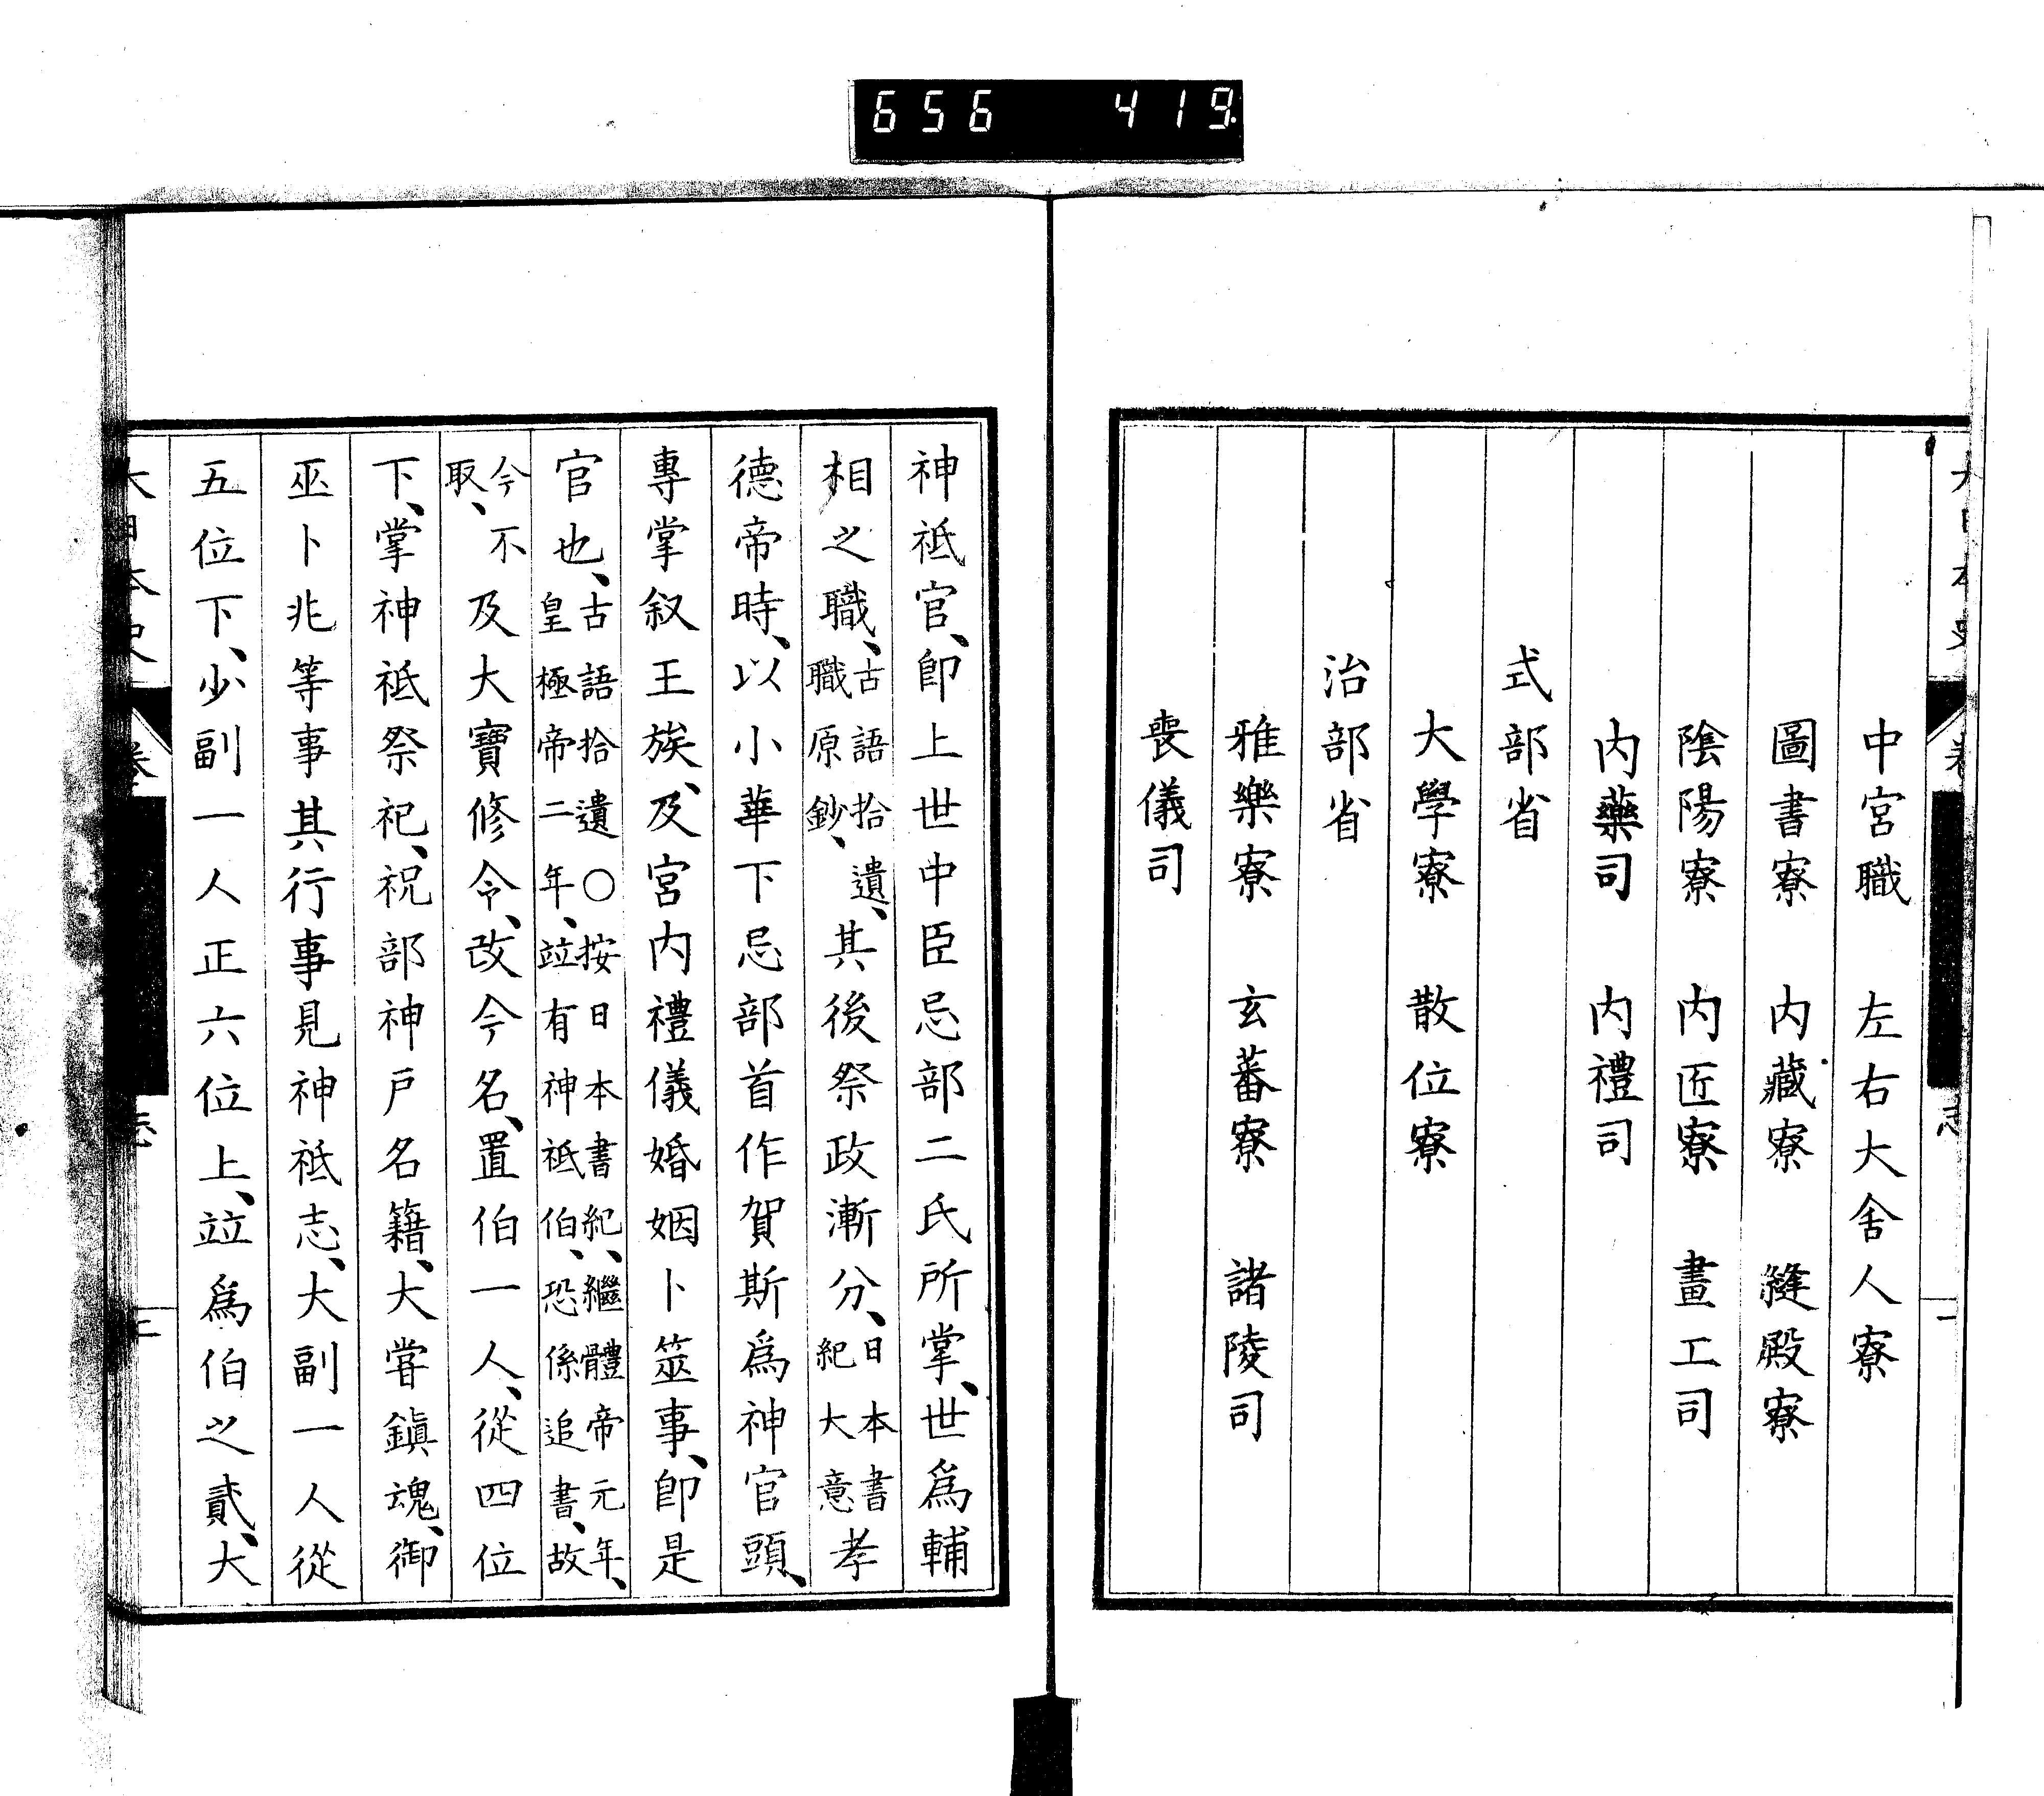 656 419
中宮職　左右大舍人寮
圖書寮　内藏寮　縫殿寮
陰陽寮　内匠寮　畫工司
内藥司　内禮司
式部省
大學寮　散位寮
治部省
雅樂寮　玄蕃寮　諸陵司
喪儀司
神祇官、卽上世中臣忌部二氏所掌、世爲輔
相之職、古語拾遺、職原鈔、其後祭政漸分、日本書紀大意孝
德帝時、以小華下忌部首作賀斯爲神官頭、
專掌叙王族、及宮内禮儀婚姻卜筮事、卽是
官也、古語拾遺〇按日本書紀、繼體帝元年、皇極帝二年、竝有神祇伯、恐係追書、故
今不取、及大寶修令、改今名、置伯一人、從四位
下、掌神祇祭祀、祝部神戶名籍、大甞鎭魂、御
巫卜兆等事其行事見神祇志、大副一人從
五位下、少副一人正六位上、竝爲伯之貳、大